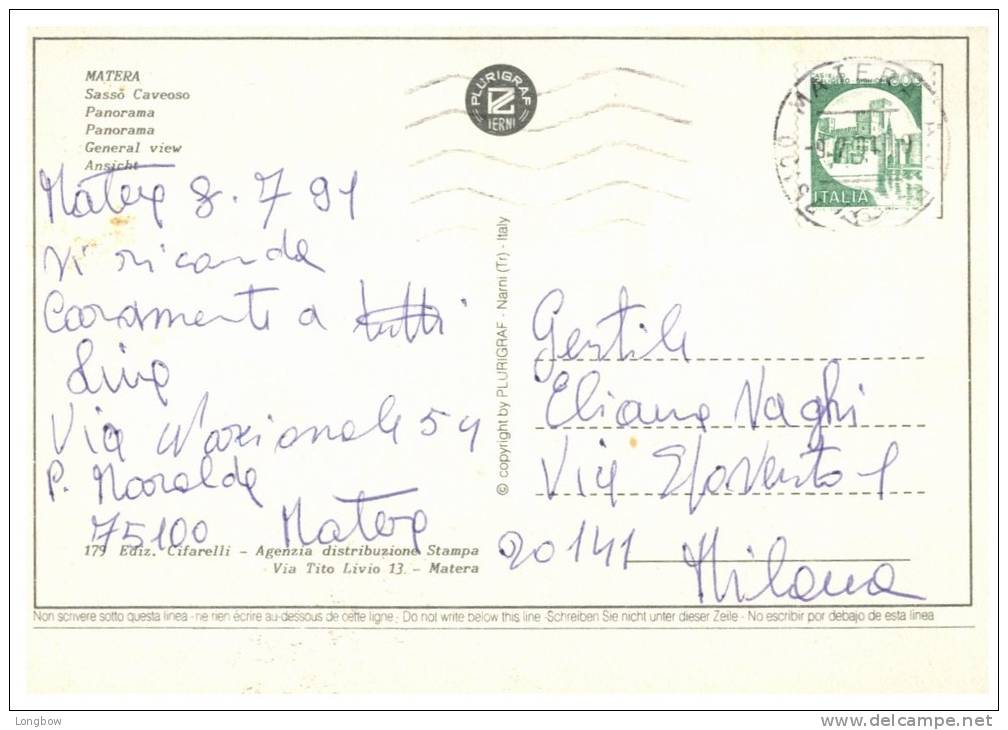 MATERA
Sasso Caveoso
Panorama
Panorama
General view
Ansicht
PLURIGRAF
TERNI
MATERA
ITALIA
Matera 8. 7 91
Vi ricorda
Caramente a tutti
Via Nazionale 54
75100 Matera
179 Ediz. Cifarelli - Agenzia distribuzione Stampa
Via Tito Livio 13 - Matera
© copyright by PLURIGRAF - Narni (Tr) - Italy
Gentile
Eliana Vaghi
Via
20141
Milano
Non scrivere sotto questa linea - ne rien écrire au-dessous de cette ligne - Do not write below this line - Schreiben Sie nicht unter dieser Zeile - No escribir por debajo de esta linea
Longbow
www.delcampe.net